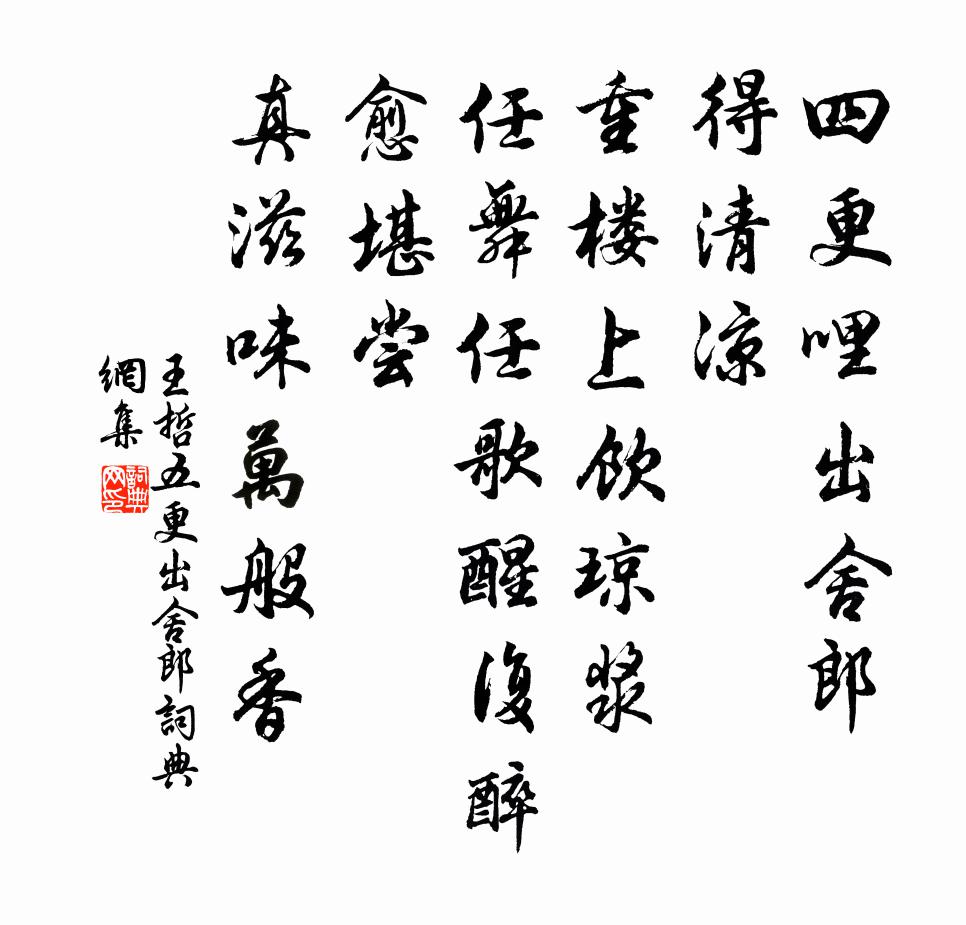 四更哩出舍郎
得清凉
重楼上飲琼漿
任舞任歌醒復醉
愈堪尝
真滋味萬般香
王哲五更出舍郎詞典
網集
詞典
网印